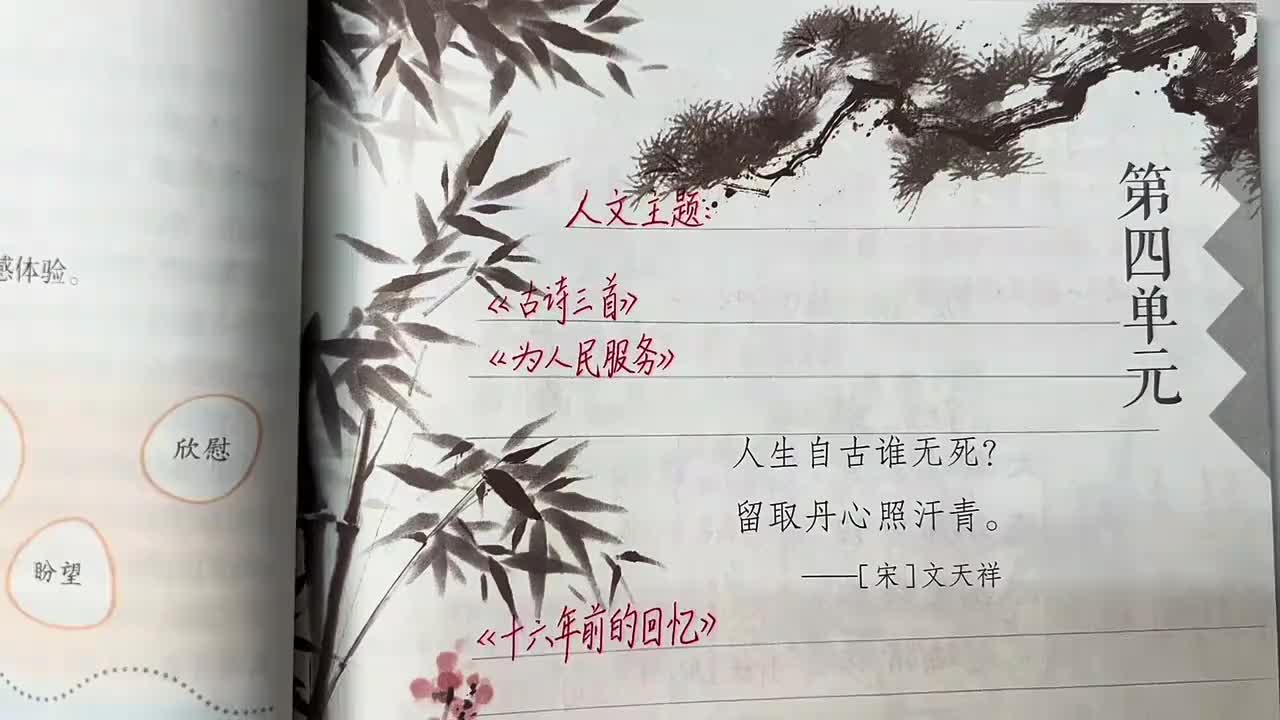 感体验。
欣慰
盼望
第四单元
人文主题：
《古诗三首》
《为人民服务》
人生自古谁无死？
留取丹心照汗青。
——[宋]文天祥
《十六年前的回忆》